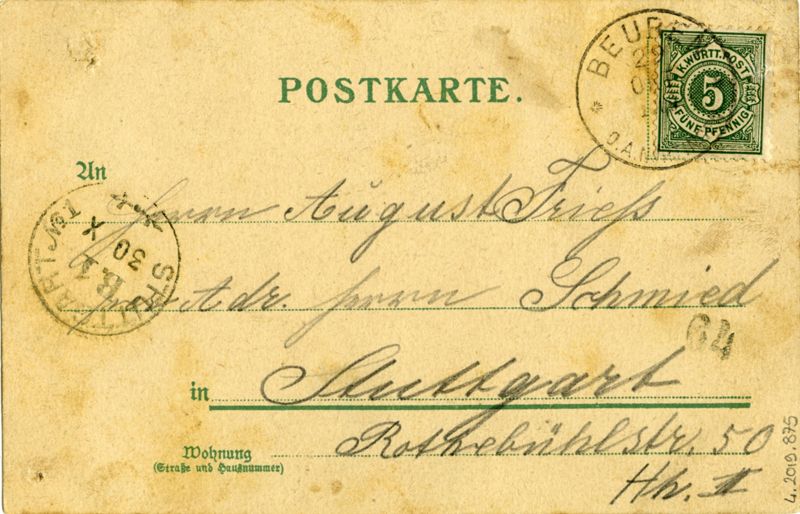 POSTKARTE.
BEUREN
29
OKT
O.A.N
K.WÜRTT.POST
5
FÜNF PFENNIG
An
Herrn August Friess
per Adr. Herrn Schmied
STUTTGART No 1
X
30
B.
64
in Stuttgart
Wohnung
(Straße und Hausnummer)
Rothebühlstr. 50
Hh. II
4.2019.875